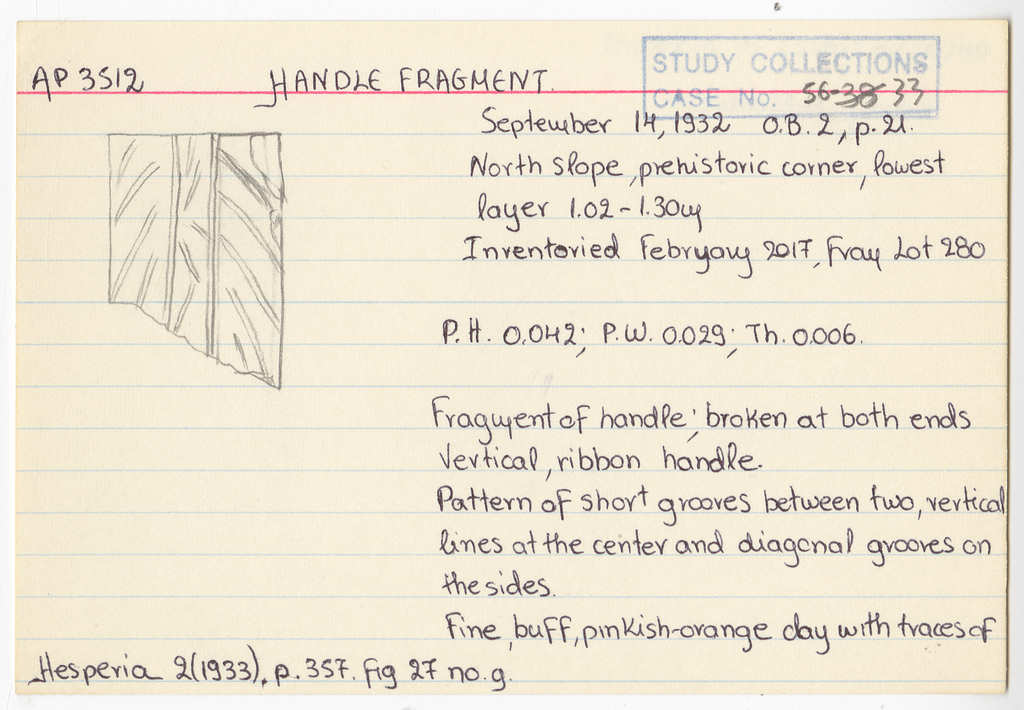 STUDY COLLECTIONS
CASE No. 56-38 33
AP 3512 HANDLE FRAGMENT.
September 14, 1932 O.B. 2, p. 21.
North Slope, prehistoric corner, lowest
layer 1.02-1.30m
Inventoried February 2017, from Lot 280
P.H. 0.042; P.W. 0.029; Th. 0.006.
Fragment of handle; broken at both ends
Vertical, ribbon handle.
Pattern of short grooves between two, vertical
lines at the center and diagonal grooves on
the sides.
Fine, buff, pinkish-orange clay with traces of
Hesperia 2(1933), p. 357. fig 27 no. g.